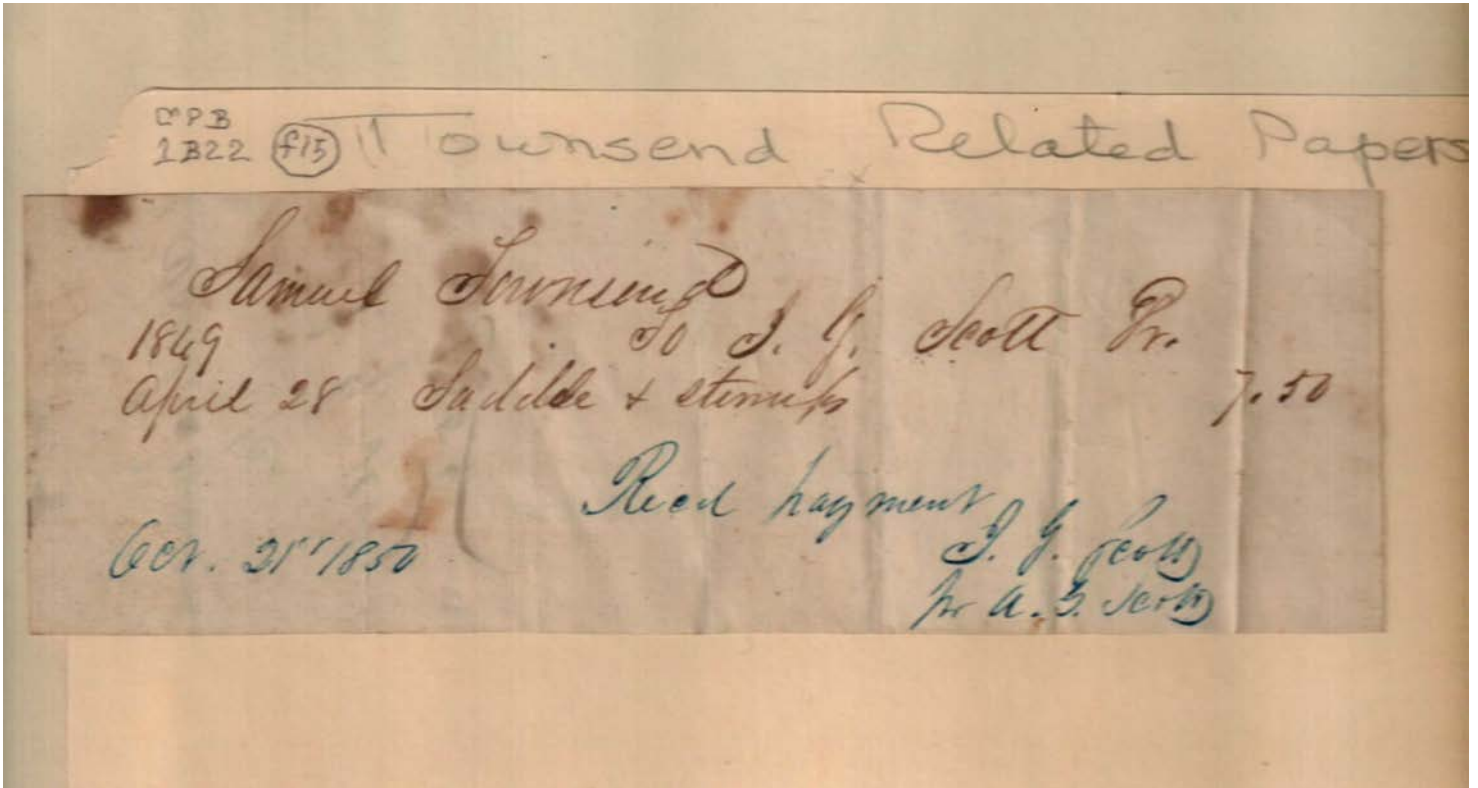 CPB
1B22 f15 Townsend Related Papers
Samuel Townsend
1849 To J. G. Scott Dr.
April 28 Saddle & stirrups 7.50
Recd payment
Oct. 21st 1850 J. G. Scott
pr A. G. Scott